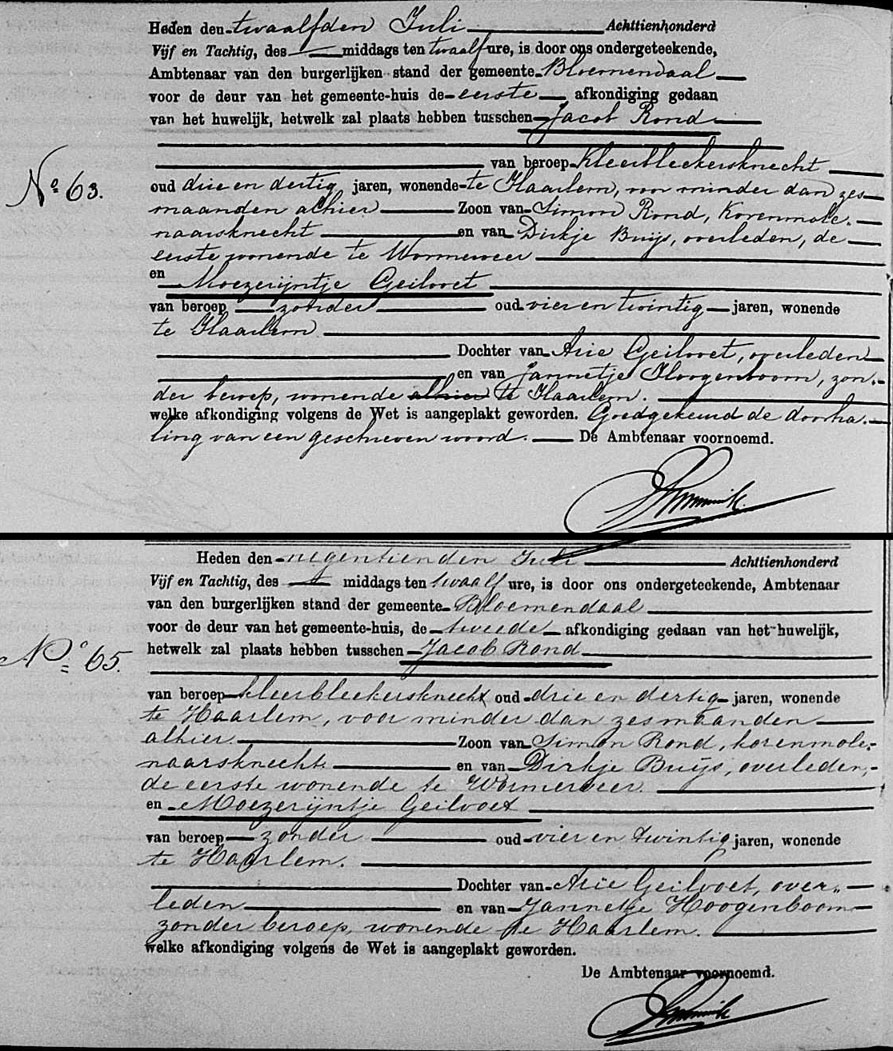 Heden den twaalfden Juli Achttienhonderd
Vijf en Tachtig, des middags ten twaalf ure, is door ons ondergeteekende,
Ambtenaar van den burgerlijken stand der gemeente Bloemendaal
voor de deur van het gemeente-huis de eerste afkondiging gedaan
van het huwelijk, hetwelk zal plaats hebben tusschen Jacob Rond
van beroep Kleerbleekersknecht
No 63.
oud drie en dertig jaren, wonende te Haarlem, voor minder dan zes
maanden alhier Zoon van Simon Rond, Korenmole-
naarsknecht en van Dirkje Buijs, overleden, de
eerste wonende te Wormerveer
en Moezerijntje Geilvoet
van beroep zonder oud vier en twintig jaren, wonende
te Haarlem
Dochter van Arie Geilvoet, overleden
en van Jannetje Hoogenboom, zon-
der beroep, wonende alhier te Haarlem.
welke afkondiging volgens de Wet is aangeplakt geworden. Goedgekeurd de doorha-
ling van een geschreven woord. De Ambtenaar voornoemd.
Heden den negentienden Juli Achttienhonderd
Vijf en Tachtig, des middags ten twaalf ure, is door ons ondergeteekende, Ambtenaar
van den burgerlijken stand der gemeente Bloemendaal
voor de deur van het gemeente-huis, de tweede afkondiging gedaan van het huwelijk,
hetwelk zal plaats hebben tusschen Jacob Rond
No 65.
van beroep kleerbleekersknecht oud drie en dertig jaren, wonende
te Haarlem, voor minder dan zes maanden
alhier. Zoon van Simon Rond, korenmole-
naarsknecht en van Dirkje Buijs, overleden,
de eerste wonende te Wormerveer
en Moezerijntje Geilvoet
van beroep zonder oud vier en twintig jaren, wonende
te Haarlem.
Dochter van Arie Geilvoet, over-
leden en van Jannetje Hoogenboom
zonder beroep, wonende te Haarlem.
welke afkondiging volgens de Wet is aangeplakt geworden.
De Ambtenaar voornoemd.